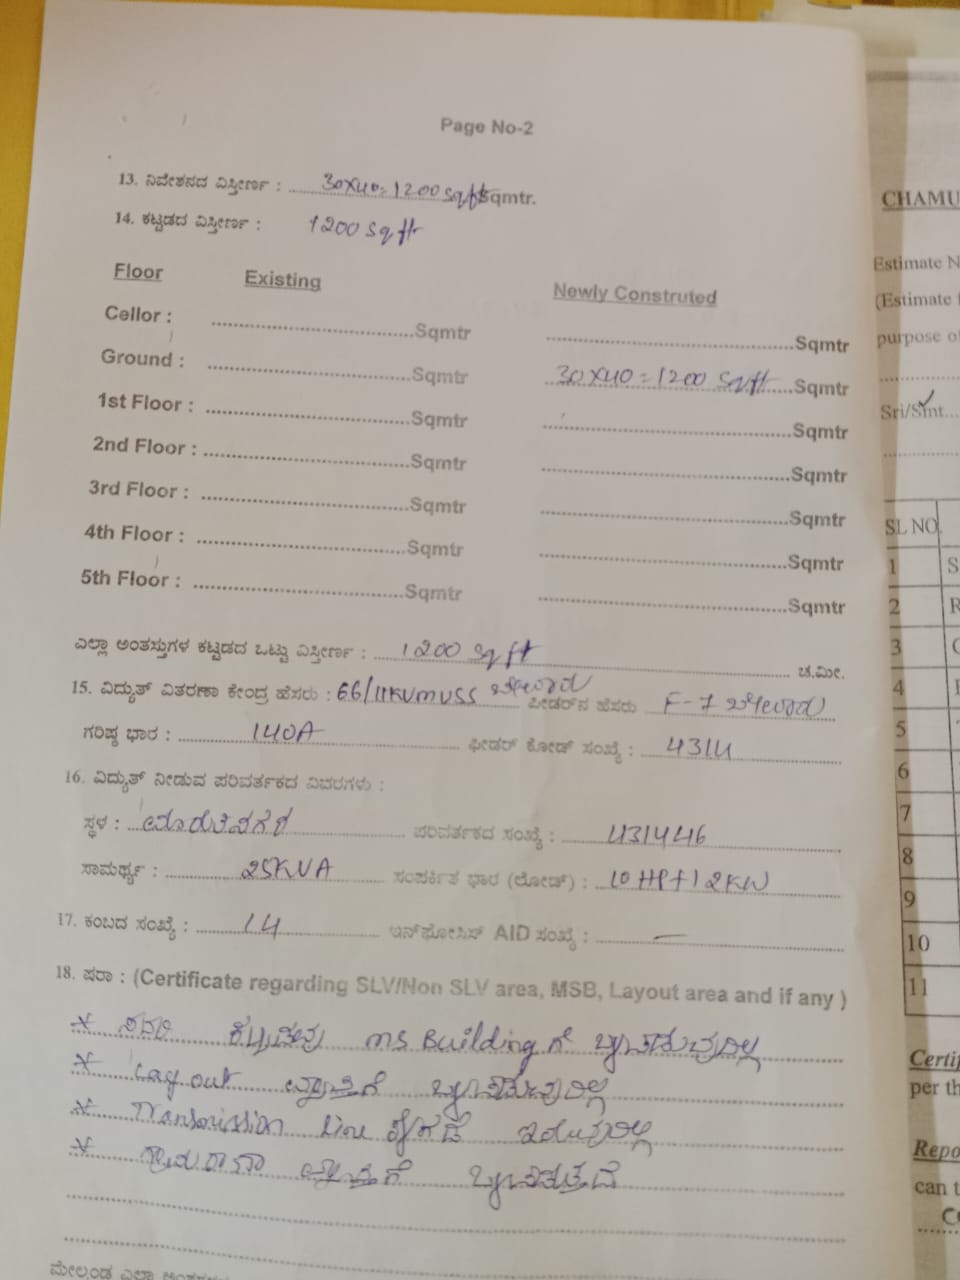 Page No-2
13. ನಿವೇಶನದ ವಿಸ್ತೀರ್ಣ : 30X40=1200 sqft Sqmtr.
14. ಕಟ್ಟಡದ ವಿಸ್ತೀರ್ಣ : 1200 sq ft
Floor Existing Newly Constructed
Cellor : Sqmtr Sqmtr
Ground : Sqmtr 30X40=1200 Sqft Sqmtr
1st Floor : Sqmtr Sqmtr
2nd Floor : Sqmtr Sqmtr
3rd Floor : Sqmtr Sqmtr
4th Floor : Sqmtr Sqmtr
5th Floor : Sqmtr Sqmtr
ಎಲ್ಲಾ ಅಂತಸ್ತುಗಳ ಕಟ್ಟಡದ ಒಟ್ಟು ವಿಸ್ತೀರ್ಣ : 1200 sq ft ಚ.ಮೀ.
15. ವಿದ್ಯುತ್ ವಿತರಣಾ ಕೇಂದ್ರ ಹೆಸರು : 66/11KV MUSS ಫೀಡರ್‌ನ ಹೆಸರು F-7
ಗರಿಷ್ಠ ಭಾರ : 140A ಫೀಡರ್ ಕೋಡ್ ಸಂಖ್ಯೆ : 4314
16. ವಿದ್ಯುತ್ ನೀಡುವ ಪರಿವರ್ತಕದ ವಿವರಗಳು :
ಸ್ಥಳ : ಪರಿವರ್ತಕದ ಸಂಖ್ಯೆ : 431446
ಸಾಮರ್ಥ್ಯ : 25KVA ಸಂಪರ್ಕಿತ ಭಾರ (ಲೋಡ್) : 10HP+12KW
17. ಕಂಬದ ಸಂಖ್ಯೆ : 14 ಇನ್‌ಫೋಸಿಸ್ AID ಸಂಖ್ಯೆ : —
18. ಷರಾ : (Certificate regarding SLV/Non SLV area, MSB, Layout area and if any )
* ಸದರಿ ಕಟ್ಟಡವು MS Building ಗೆ
* Layout ವ್ಯಾಪ್ತಿಗೆ
* Transmission line ಕೆಳಗಡೆ ಇರುವುದಿಲ್ಲ
* ವ್ಯಾಪ್ತಿಗೆ
ಮೇಲ್ಕಂಡ ಎಲ್ಲಾ
CHAMU
Estimate N
(Estimate
purpose of
Sri/Smt...
SL NO
1 S
2 R
3
4
5
6
7
8
9
10
11
Certif
per th
Repo
can t